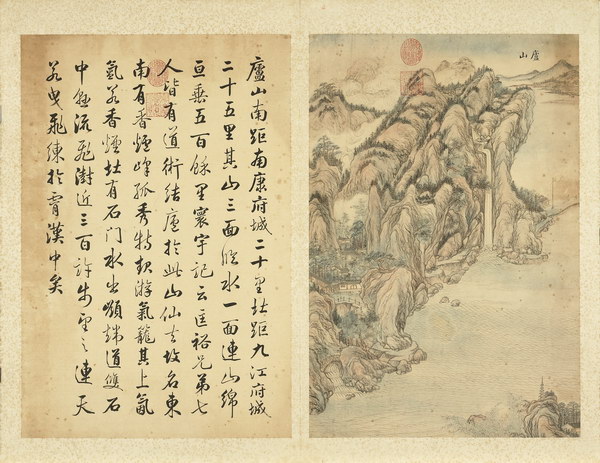 廬山
廬山南距南康府城二十里北距九江府城
二十五里其山三面臨水一面連山綿
亘垂五百餘里寰宇記云匡裕兄弟七
人皆有道術結廬於此山仙去故名東
南有香爐峰孤秀特起游氣籠其上氤
氳若香煙北有石門水出嶺端道雙石
中懸流飛澍近三百許步望之連天
若曳飛練於霄漢中矣